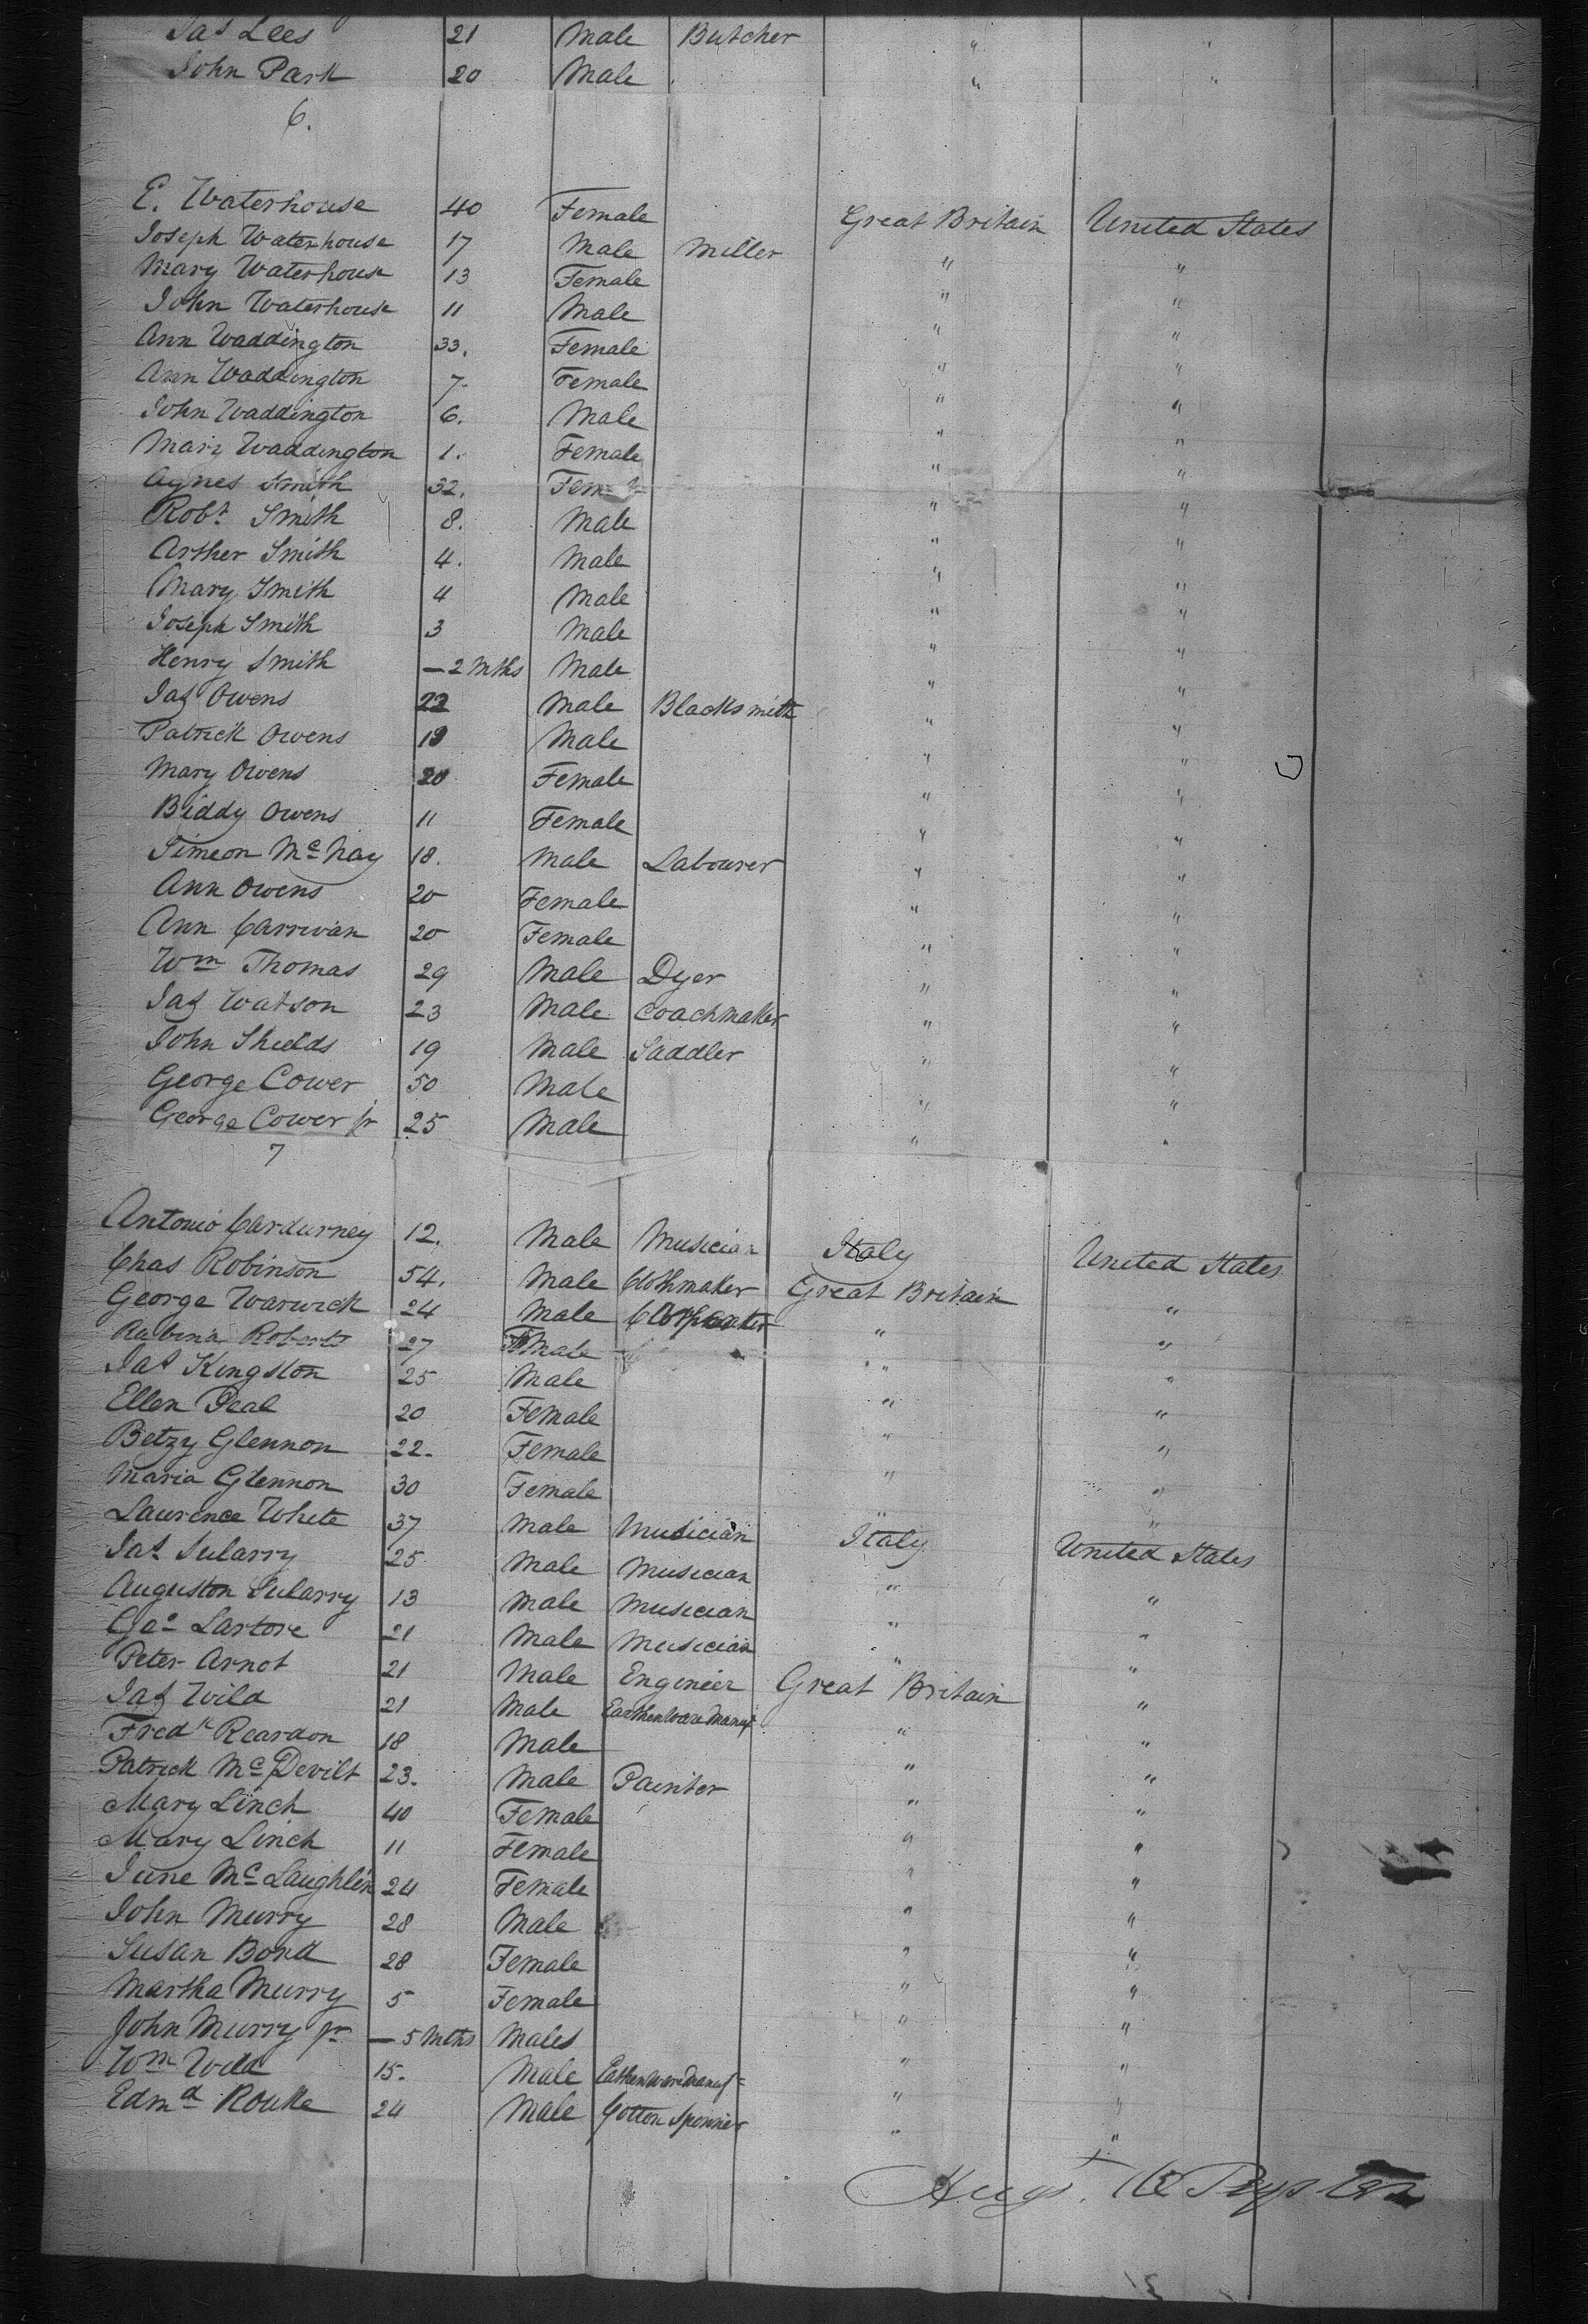 Jas Lees 21 Male Butcher " "
John Park 20 Male " "
6.
E. Waterhouse 40 Female Great Britain United States
Joseph Waterhouse 17 Male Miller " "
Mary Waterhouse 13 Female " "
John Waterhouse 11 Male " "
Ann Waddington 33. Female " "
Ann Waddington 7. Female " "
John Waddington 6. Male " "
Mary Waddington 1. Female " "
Agnes Smith 32. " "
Robt Smith 8. Male " "
Arther Smith 4. Male " "
Mary Smith 4 Male " "
Joseph Smith 3 Male " "
Henry Smith — 2 Mths Male " "
Jas Owens 22 Male Blacksmith " "
Patrick Owens 19 Male " "
Mary Owens 20 Female " "
Biddy Owens 11 Female " "
Simeon McNay 18. Male Labourer " "
Ann Owens 20 Female " "
Ann Carrivan 20 Female " "
Wm Thomas 29 Male Dyer " "
Jas Watson 23 Male Coachmaker " "
John Shields 19 Male Saddler " "
George Cower 50 Male " "
George Cower jr 25 Male " "
7
Antonio Cardurney 12. Male Musician Italy United States
Chas Robinson 54. Male Clothmaker Great Britain "
George Warwick 24 Male " "
Roberts 27 " "
Jas Kingston 25 Male " "
Ellen Peal 20 Female " "
Betzy Glennon 22. Female " "
Maria Glennon 30 Female " "
Laurence White 37 Male Musician Italy United States
Jas Sularry 25 Male Musician " "
Auguston Sularry 13 Male Musician " "
Lartore 21 Male Musician " "
Peter Arnot 21 Male Engineer Great Britain "
Jas Wild 21 Male Earthenware Manuf " "
Fredk Reardon 18 Male " "
Patrick McDevilt 23. Male Painter " "
Mary Linch 40 Female " "
Mary Linch 11 Female " "
June McLaughlin 24 Female " "
John Murry 28 Male " "
Susan Bond 28 Female " "
Martha Murry 5 Female " "
John Murry jr — 5 Mths Males " "
Wm Wild 15. Male Eathenware Manuf " "
Edmd Rouke 24 Male Cotton Sponner " "